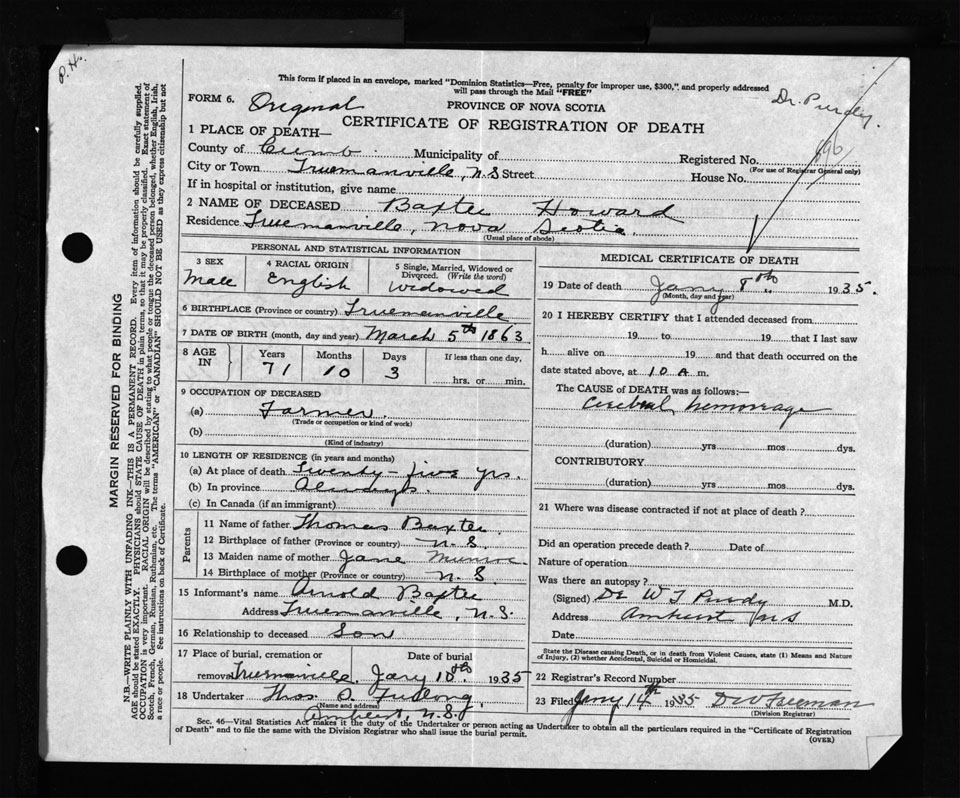 P.H.
This form if placed in an envelope, marked "Dominion Statistics—Free, penalty for improper use, $300," and properly addressed
will pass through the Mail "FREE"
FORM 6. Original
PROVINCE OF NOVA SCOTIA
Dr. Purdy.
CERTIFICATE OF REGISTRATION OF DEATH
1 PLACE OF DEATH—
County of Cumb. Municipality of Registered No.
(For use of Registrar General only)
City or Town Truemanville, N.S Street House No.
If in hospital or institution, give name
2 NAME OF DECEASED Baxter Howard
Residence Truemanville, Nova Scotia.
(Usual place of abode)
PERSONAL AND STATISTICAL INFORMATION
3 SEX
Male
4 RACIAL ORIGIN
English
5 Single, Married, Widowed or
Divorced. (Write the word)
Widowed
6 BIRTHPLACE (Province or country) Truemanville
7 DATE OF BIRTH (month, day and year) March 5th 1863
8 AGE IN
Years Months Days If less than one day,
71 10 3 hrs. or min.
9 OCCUPATION OF DECEASED
(a) Farmer.
(Trade or occupation or kind of work)
(b)
(Kind of industry)
10 LENGTH OF RESIDENCE (in years and months)
(a) At place of death Twenty-five yrs.
(b) In province Always.
(c) In Canada (if an immigrant)
Parents
11 Name of father Thomas Baxter
12 Birthplace of father (Province or country) N.S.
13 Maiden name of mother Jane Munroe
14 Birthplace of mother (Province or country) N.S.
15 Informant's name Arnold Baxter
Address Truemanville, N.S.
16 Relationship to deceased Son
17 Place of burial, cremation or Date of burial
removal Truemanville. Jany 10th 1935
18 Undertaker Thos. D. Furlong
(Name and address)
Amherst, N.S.
MEDICAL CERTIFICATE OF DEATH
19 Date of death Jany 8th 1935.
(Month, day and year)
20 I HEREBY CERTIFY that I attended deceased from
19 to 19 that I last saw
h alive on 19 and that death occurred on the
date stated above, at 10 A. m.
The CAUSE of DEATH was as follows:—
Cerebral hemorrage
(duration) yrs mos dys.
CONTRIBUTORY
(duration) yrs mos dys.
21 Where was disease contracted if not at place of death?
Did an operation precede death? Date of
Nature of operation
Was there an autopsy?
(Signed) Dr W T Purdy M.D.
Address Amherst NS
Date
State the Disease causing Death, or in death from Violent Causes, state (1) Means and Nature
of Injury, (2) whether Accidental, Suicidal or Homicidal.
22 Registrar's Record Number
23 Filed Jany 14th 1935
(Division Registrar)
Sec. 46—Vital Statistics Act makes it the duty of the Undertaker or person acting as Undertaker to obtain all the particulars required in the "Certificate of Registration
of Death" and to file the same with the Division Registrar who shall issue the burial permit.
(OVER)
MARGIN RESERVED FOR BINDING
N.B.—WRITE PLAINLY WITH UNFADING INK—THIS IS A PERMANENT RECORD. Every item of information should be carefully supplied.
AGE should be stated EXACTLY. PHYSICIANS should STATE CAUSE OF DEATH in plain terms, so that it may be properly classified. Exact statement of
OCCUPATION is very important. RACIAL ORIGIN will be described by stating to what people or tongue the deceased person belonged, whether English, Irish,
Scotch, French, German, Russian, Ruthenian, etc. The terms "AMERICAN" or "CANADIAN" SHOULD NOT BE USED as they express citizenship but not
a race or people. See instructions on back of Certificate.